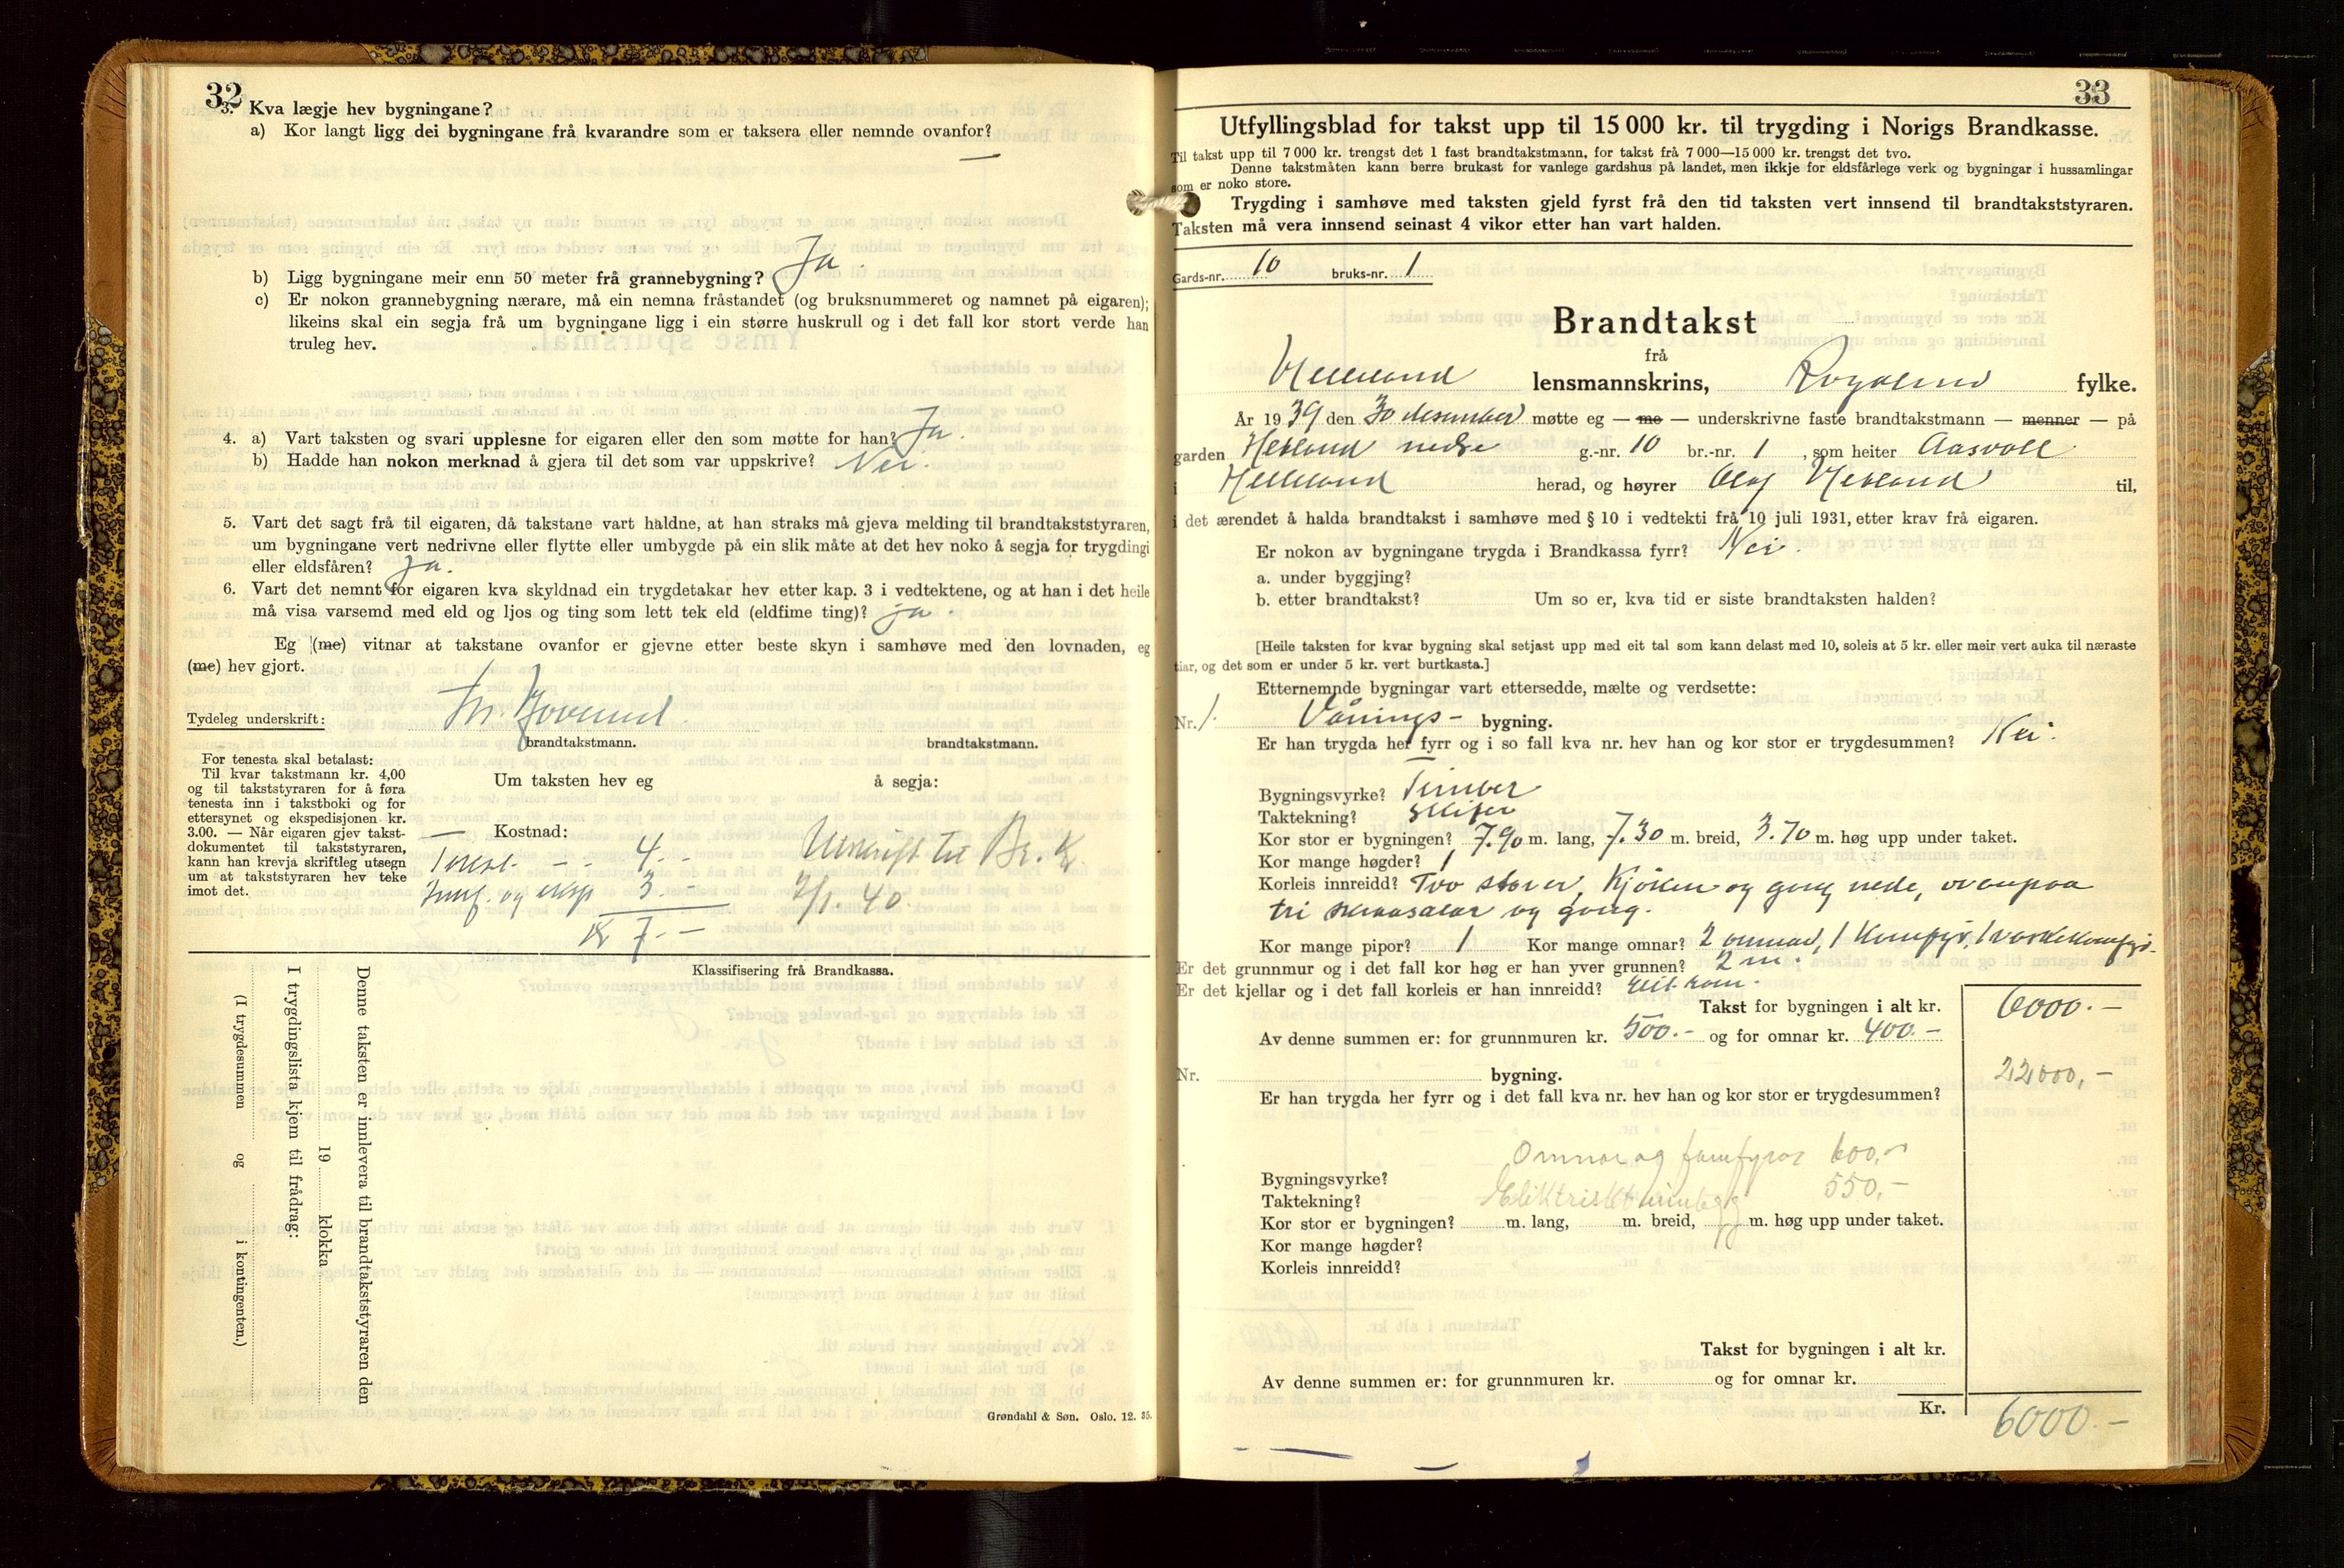 32
3. Kva lægje hev bygningane?
a) Kor langt ligg dei bygningane frå kvarandre som er taksera eller nemnde ovanfor?
—
b) Ligg bygningane meir enn 50 meter frå grannebygning? Ja.
c) Er nokon grannebygning nærare, må ein nemna fråstandet (og bruksnummeret og namnet på eigaren);
likeins skal ein segja frå um bygningane ligg i ein større huskrull og i det fall kor stort verde han
truleg hev.
4. a) Vart taksten og svari upplesne for eigaren eller den som møtte for han? Ja.
b) Hadde han nokon merknad å gjera til det som var uppskrive? Nei.
5. Vart det sagt frå til eigaren, då takstane vart haldne, at han straks må gjeva melding til brandtakststyraren,
um bygningane vert nedrivne eller flytte eller umbygde på ein slik måte at det hev noko å segja for trygdingi
eller eldsfåren? Ja.
6. Vart det nemnt for eigaren kva skyldnad ein trygdetakar hev etter kap. 3 i vedtektene, og at han i det heile
må visa varsemd med eld og ljos og ting som lett tek eld (eldfime ting)? ja.
Eg (me) vitnar at takstane ovanfor er gjevne etter beste skyn i samhøve med den lovnaden, eg
(me) hev gjort.
Tydeleg underskrift:
brandtakstmann. brandtakstmann.
For tenesta skal betalast:
Til kvar takstmann kr. 4,00
og til takststyraren for å føra
tenesta inn i takstboki og for
ettersynet og ekspedisjonen kr.
3.00. — Når eigaren gjev takst-
dokumentet til takststyraren,
kann han krevja skriftleg utsegn
um at takststyraren hev teke
imot det.
Um taksten hev eg å segja:
— Kostnad:
4.-
Innf. og eksp 3.-
Kr 7.-
Utskrift til Br. K.
2/1. 40.
Klassifisering frå Brandkassa.
Denne taksten er innlevera til brandtakststyraren den
19 klokka
I trygdingslista kjem til frådrag:
(I trygdesummen og i kontingenten.)
Grøndahl & Søn. Oslo. 12. 35.
33
Utfyllingsblad for takst upp til 15 000 kr. til trygding i Norigs Brandkasse.
Til takst upp til 7 000 kr. trengst det 1 fast brandtakstmann, for takst frå 7 000—15 000 kr. trengst det tvo.
Denne takstmåten kann berre brukast for vanlege gardshus på landet, men ikkje for eldsfårlege verk og bygningar i hussamlingar
som er noko store.
Trygding i samhøve med taksten gjeld fyrst frå den tid taksten vert innsend til brandtakststyraren.
Taksten må vera innsend seinast 4 vikor etter han vart halden.
Gards-nr. 10 bruks-nr. 1
Brandtakst
frå
Helleland lensmannskrins, Rogaland fylke.
År 1939 den 30 desember møtte eg — me — underskrivne faste brandtakstmann — menner — på
garden Hetland nedre g.-nr. 10 br.-nr. 1, som heiter Aasvoll
i Helleland herad, og høyrer Olaf Hetland til,
i det ærendet å halda brandtakst i samhøve med § 10 i vedtekti frå 10 juli 1931, etter krav frå eigaren.
Er nokon av bygningane trygda i Brandkassa fyrr? Nei.
a. under byggjing?
b. etter brandtakst? Um so er, kva tid er siste brandtaksten halden?
[Heile taksten for kvar bygning skal setjast upp med eit tal som kann delast med 10, soleis at 5 kr. eller meir vert auka til næraste
tiar, og det som er under 5 kr. vert burtkasta.]
Etternemnde bygningar vart ettersedde, mælte og verdsette:
Nr. 1. Vånings- bygning.
Er han trygda her fyrr og i so fall kva nr. hev han og kor stor er trygdesummen? Nei.
Bygningsvyrke? Timber
Taktekning? Skifer
Kor stor er bygningen? 7.90 m. lang, 7.30 m. breid, 3.70 m. høg upp under taket.
Kor mange høgder? 1
Korleis innreidd? Tvo stover, Kjøken og gang nede, ovanpaa
tri skraasalar og gang.
Kor mange pipor? 1 Kor mange omnar? 2 omnar, 1 Komfyr, 1 vaskekomfyr.
Er det grunnmur og i det fall kor høg er han yver grunnen? 2 m.
Er det kjellar og i det fall korleis er han innreidd? eitt rom.
Takst for bygningen i alt kr. 6000.-
Av denne summen er: for grunnmuren kr. 500.- og for omnar kr. 400.-
22000,-
Nr. bygning.
Er han trygda her fyrr og i det fall kva nr. hev han og kor stor er trygdesummen?
Omnar og komfyrar 600,-
Bygningsvyrke?
Elektrisk 550,-
Taktekning?
Kor stor er bygningen? m. lang, m. breid, m. høg upp under taket.
Kor mange høgder?
Korleis innreidd?
Takst for bygningen i alt kr.
Av denne summen er: for grunnmuren kr. og for omnar kr.
Kr. 6000.-